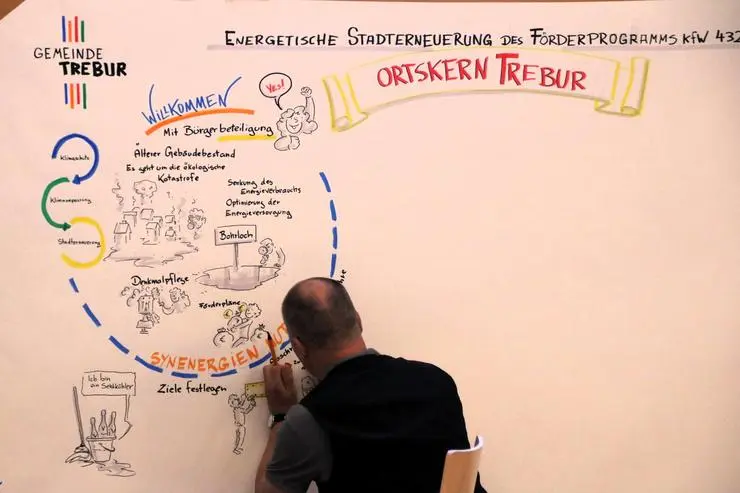 GEMEINDE
TREBUR
ENERGETISCHE STADTERNEUERUNG DES FÖRDERPROGRAMMS KfW 432
ORTSKERN TREBUR
WILLKOMMEN
YES!
Mit Bürgerbeteiligung
Älterer Gebäudebestand
Es geht um die ökologische
Katastrofe
Klimaschutz
Klimaanpassung
Stadtsanierung
Senkung des
Energieverbrauchs
Optimierung der
Energieversorgung
Bohrloch
Denkmalpflege
Förderpläne
SYNENERGIEN
Ziele festlegen
Ich bin
ein Sektkühler